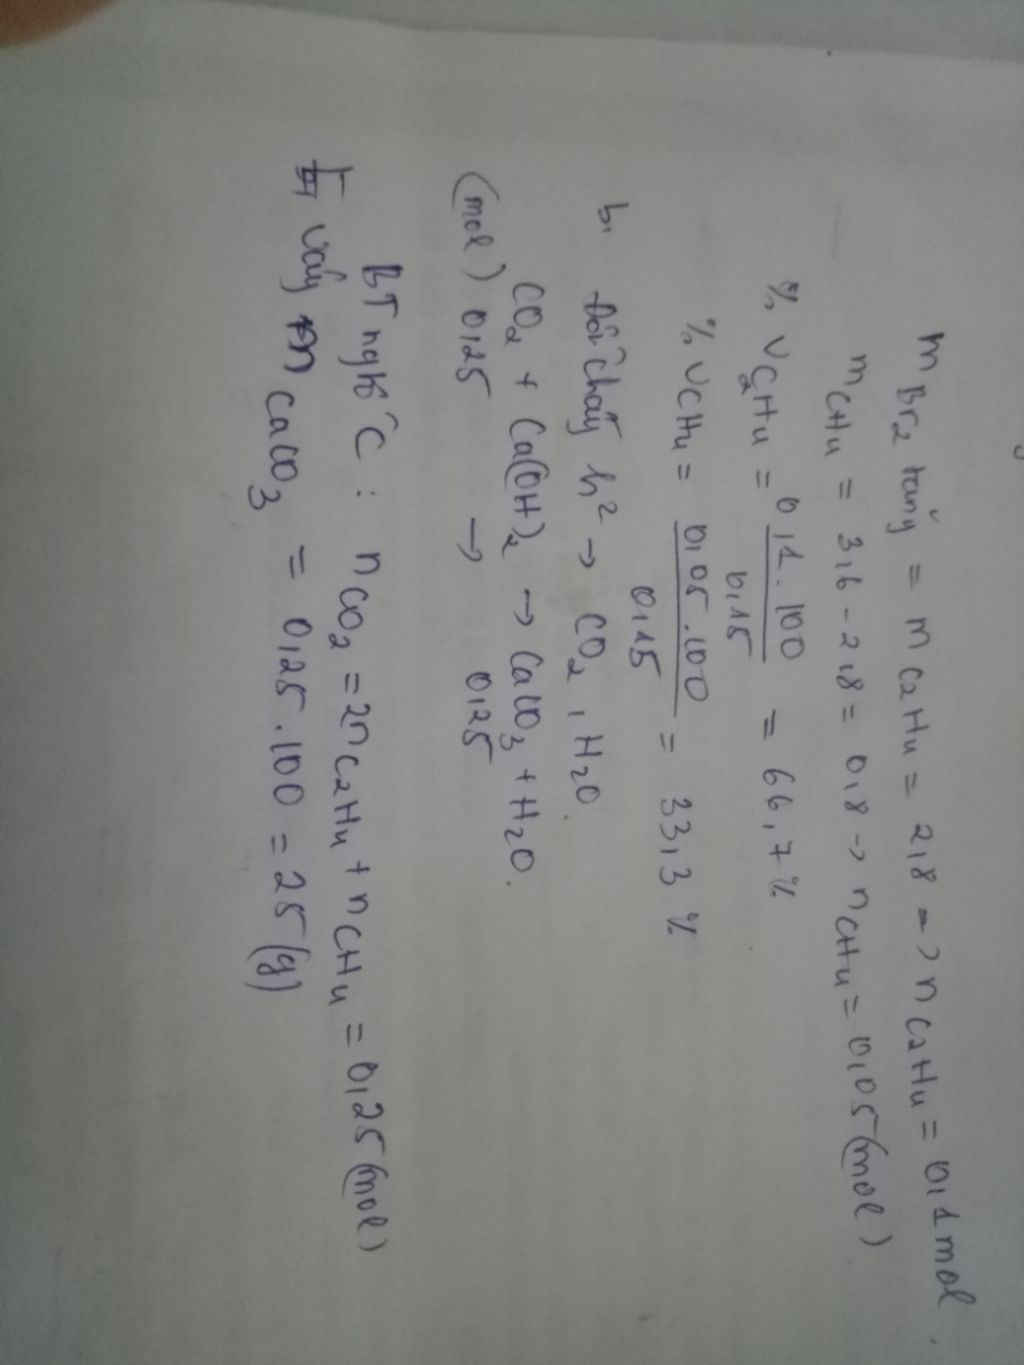 m Br2 tăng = m C2H4 = 2,8 -> n C2H4 = 0,1 mol.
m CH4 = 3,6 - 2,8 = 0,8 -> n CH4 = 0,05 (mol)
% V C2H4 = 0,1.100 / 0,15 = 66,7 %
% V CH4 = 0,05.100 / 0,15 = 33,3 %
b, Đốt cháy h² -> CO2, H2O.
CO2 + Ca(OH)2 -> CaCO3 + H2O.
(mol) 0,25 -> 0,25
BT ngtố C : n CO2 = 2n C2H4 + n CH4 = 0,25 (mol)
Vậy m CaCO3 = 0,25.100 = 25 (g)